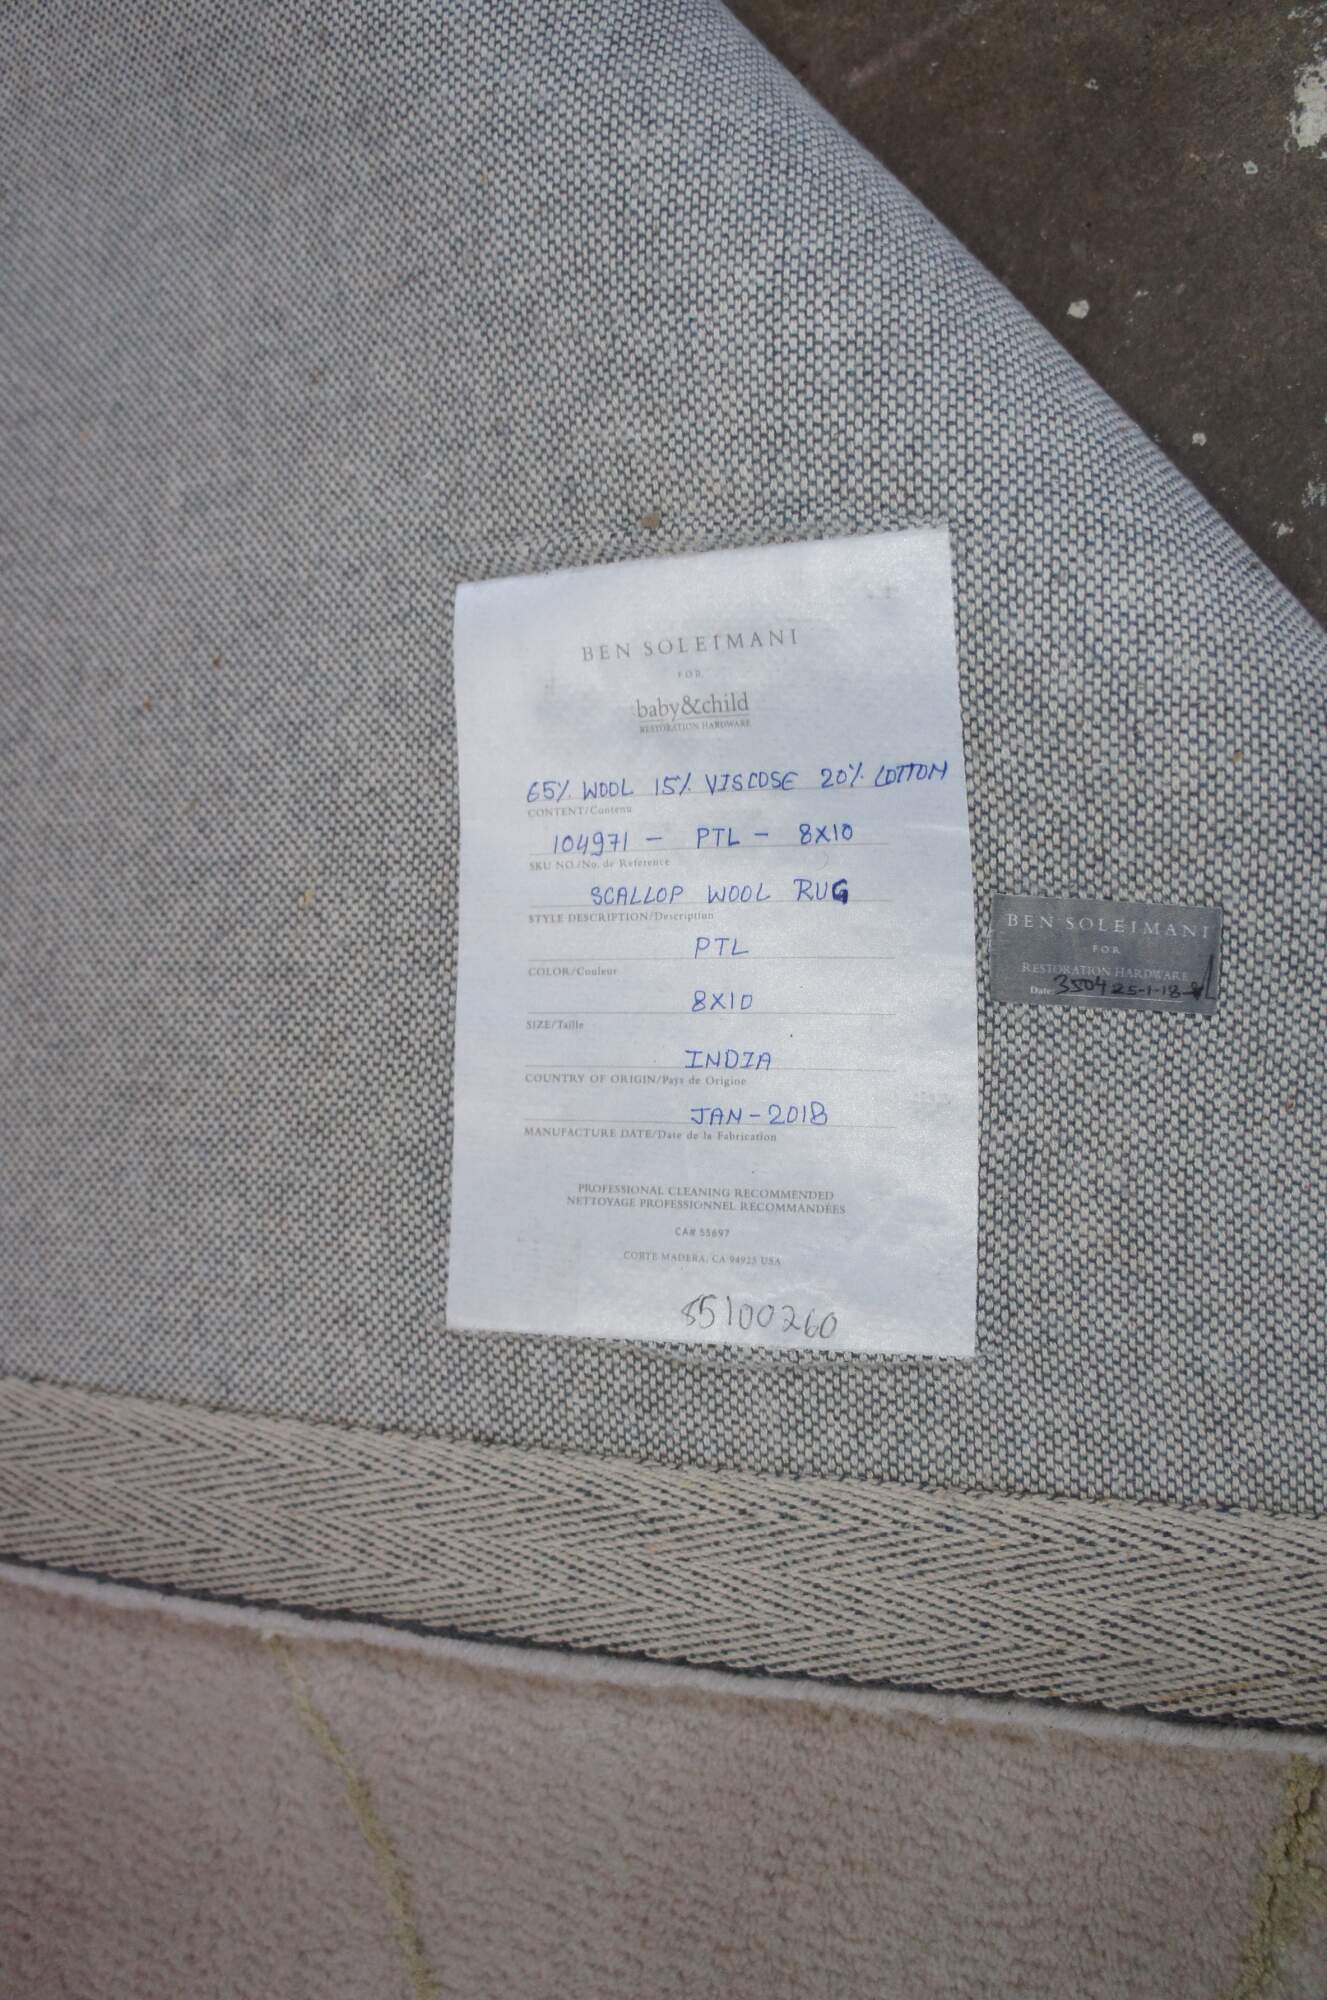 BEN SOLEIMANI
FOR
baby&child
RESTORATION HARDWARE
65% WOOL 15% VISCOSE 20% COTTON
CONTENT/Contenu
104971 - PTL - 8X10
SKU NO./No. de Référence
SCALLOP WOOL RUG
STYLE DESCRIPTION/Description
PTL
COLOR/Couleur
8X10
SIZE/Taille
INDIA
COUNTRY OF ORIGIN/Pays de Origine
JAN-2018
MANUFACTURE DATE/Date de la Fabrication
PROFESSIONAL CLEANING RECOMMENDED
NETTOYAGE PROFESSIONNEL RECOMMANDÉES
CA# 55697
CORTE MADERA, CA 94925 USA
85100260
BEN SOLEIMANI
FOR
RESTORATION HARDWARE
Date: 3504 25-1-18